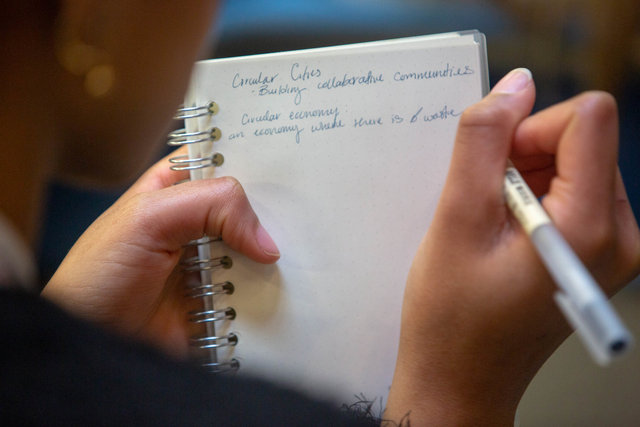 Circular Cities
- Building collaborative communities
Circular economy:
an economy where there is 0 waste